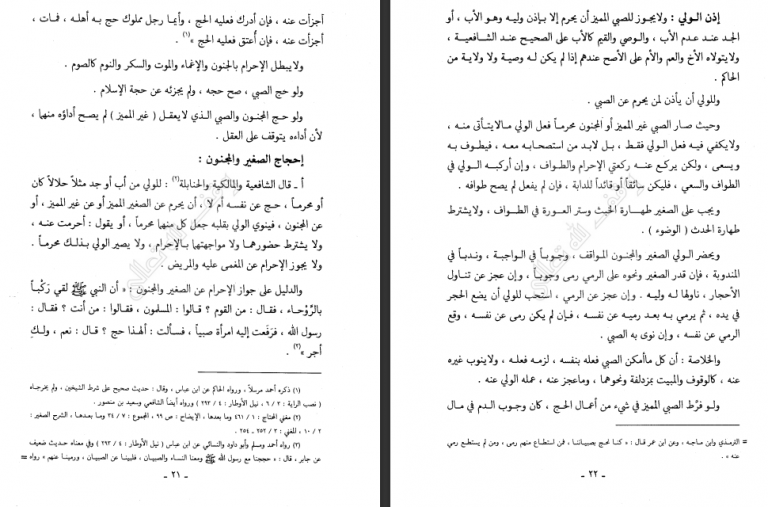 أجزأت عنه ، فإن أدرك فعليه الحج ، وأيما رجل مملوك حج به أهله ، فمات ،
أجزأت عنه ، فإن أُعتق فعليه الحج »(١) .
ولايبطل الإحرام بالجنون والإغماء والموت والسكر والنوم كالصوم .
ولو حج الصبي ، صح حجه ، ولم يجزئه عن حجة الإسلام .
ولو حج المجنون والصبي الذي لايعقل ( غير المميز ) لم يصح أداؤه منهما ،
لأن أداءه يتوقف على العقل .
إحجاج الصغير والمجنون :
أ ـ قال الشافعية والمالكية والحنابلة(٢) : للولي من أب أو جد مثلاً حلالاً كان
أو محرماً ، حج عن نفسه أم لا ، أن يحرم عن الصغير المميز أو عن غير المميز ، أو
عن المجنون ، فينوي الولي بقلبه جعل كل منهما محرماً ، أو يقول : أحرمت عنه ،
ولا يشترط حضورهما ولا مواجهتها بالإحرام ، ولا يصير الولي بذلك محرماً .
ولا يجوز الإحرام عن المغمى عليه والمريض .
والدليل على جواز الإحرام عن الصغير والمجنون : « أن النبي ﷺ لقي رَكْباً
بالرَّوْحاء ، فقال : من القوم ؟ قالوا : المسلمون ، فقالوا : من أنت ؟ فقال :
رسول الله ، فرَفَعت إليه امرأة صبياً ، فسألت : ألهذا حج ؟ قال : نعم ، ولكِ
أجر »(٣) .
(١) ذكره أحمد مرسلاً ، ورواه الحاكم عن ابن عباس ، وقال : حديث صحيح على شرط الشيخين ، ولم يخرجاه
( نصب الراية : ٣ / ٦ ، نيل الأوطار : ٤ / ٢٩٣ ) ورواه أيضاً الشافعي وسعيد بن منصور .
(٢) مغني المحتاج : ١ / ٤٦١ وما بعدها ، الإيضاح : ص ٩٩ ، المجموع : ٧ / ٣٤ وما بعدها ، الشرح الصغير :
٢ / ١٠ ، المغني : ٣ / ٢٥٢ ـ ٢٥٤ .
(٣) رواه أحمد ومسلم وأبو داود والنسائي عن ابن عباس ( نيل الأوطار : ٤ / ٢٩٣ ) وفي معناه حديث ضعيف
عن جابر ، قال : « حججنا مع رسول الله ﷺ ومعنا النساء والصبيان ، فلبينا عن الصبيان ، ورمينا عنهم » رواه =
ـ ٢١ ـ
إذن الولي : ولايجوز للصبي المميز أن يحرم إلا بإذن وليه وهو الأب ، أو
الجد عند عدم الأب ، والوصي والقيم كالأب على الصحيح عند الشافعية ،
ولايتولاه الأخ والعم والأم على الأصح عندهم إذا لم يكن له وصية ولا ولاية من
الحاكم .
وللولي أن يأذن لمن يحرم عن الصبي .
وحيث صار الصبي غير المميز أو المجنون محرماً فعل الولي مالايتأتى منه ،
ولايكفي فيه فعل الولي فقط ، بل لابد من استصحابه معه ، فيطوف به
ويسعى ، ولكن يركع عنه ركعتي الإحرام والطواف ، وإن أركبه الولي في
الطواف والسعي ، فليكن سائقاً أو قائداً للدابة ، فإن لم يفعل لم يصح طوافه .
ويجب على الصغير طهارة الخبث وستر العورة في الطواف ، ولايشترط
طهارة الحدث ( الوضوء ) .
ويحضر الولي الصغير والمجنون المواقف ، وجوباً في الواجبة ، وندباً في
المندوبة ، فإن قدر الصغير ونحوه على الرمي رمى وجوباً ، وإن عجز عن تناول
الأحجار ، ناولها له وليه . وإن عجز عن الرمي ، استحب للولي أن يضع الحجر
في يده ، ثم يرمي به بعد رميه عن نفسه ، فإن لم يكن رمى عن نفسه ، وقع
الرمي عن نفسه ، وإن نوى به الصبي .
والخلاصة : أن كل ماأمكن الصبي فعله بنفسه ، لزمه فعله ، ولاينوب غيره
عنه ، كالوقوف والمبيت بمزدلفة ونحوهما ، وماعجز عنه ، عمله الولي عنه .
ولو فرَّط الصبي المميز في شيء من أعمال الحج ، كان وجوب الدم في مال
= الترمذي وابن ماجه ، وعن ابن عمر قال : « كنا نحج بصبياننا ، فمن استطاع منهم رمى ، ومن لم يستطع رمي
عنه » .
ـ ٢٢ ـ